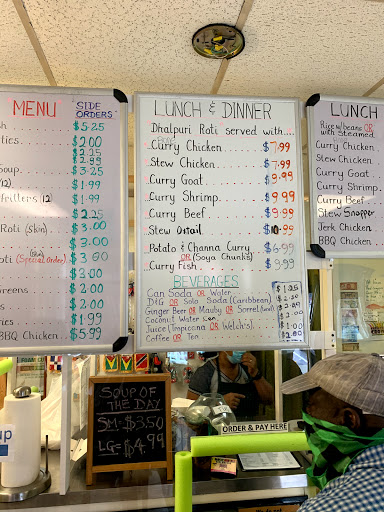 MENU
SIDE ORDERS
$5.25
$2.00
$2.25
$2.99
$3.25
$1.99
$1.99
$2.25
Roti (Skin) $3.00
$3.00
Roti (Special order) (Skin) $3.00
$3.00
$2.00
$2.00
$1.99
BBQ Chicken $5.99
LUNCH & DINNER
Dhalpuri Roti served with....
Curry Chicken $7.99
Stew Chicken $7.99
Curry Goat $9.99
Curry Shrimp $9.99
Curry Beef $9.99
Stew Oxtail $10.99
Potato & Channa Curry $6.99
OR (Soya Chunks)
Curry Fish $9.99
BEVERAGES
Can Soda OR Water $1.25
DG OR Solo Soda (Caribbean)
Ginger Beer OR Mauby OR Sorrel
Coconut Water
Juice (Tropicana OR Welch's)
Coffee OR Tea
LUNCH
Rice w/beans OR
with Steamed
Curry Chicken
Stew Chicken
Curry Goat
Curry Shrimp
Curry Beef
Stew Snapper
Jerk Chicken
BBQ Chicken
SOUP OF
THE DAY
SM= $3.50
LG= $4.99
ORDER & PAY HERE